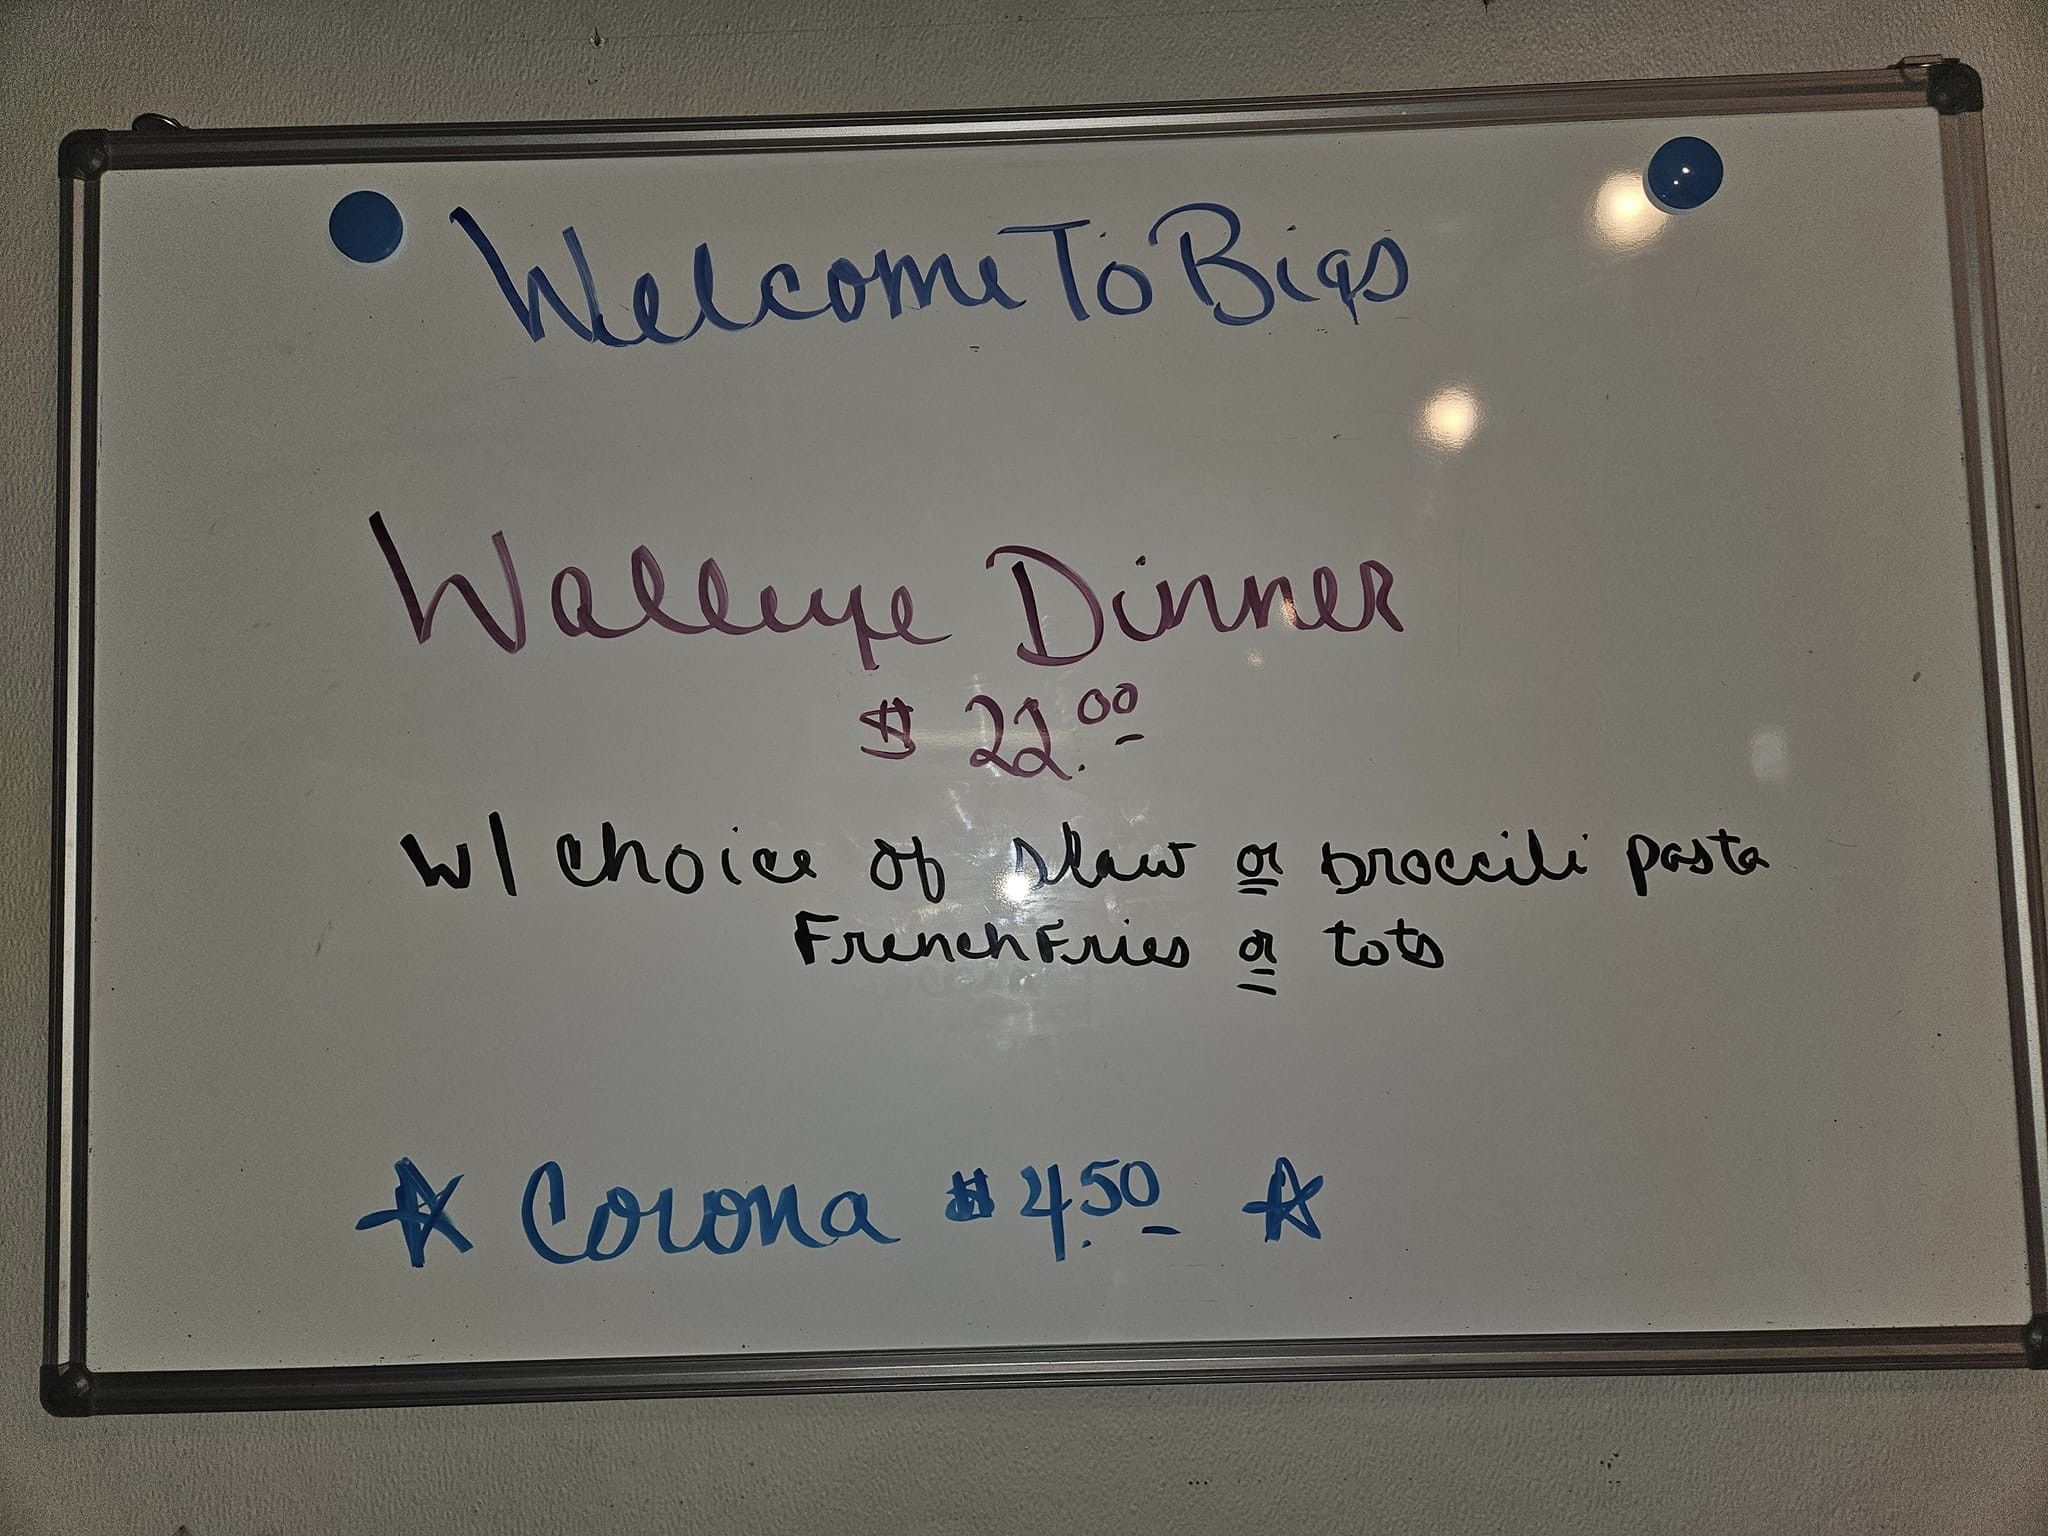 Welcome To Bigs
Walleye Dinner
$ 22.00
w/ choice of slaw or broccili pasta
French Fries or tots
☆ Corona $4.50 ☆